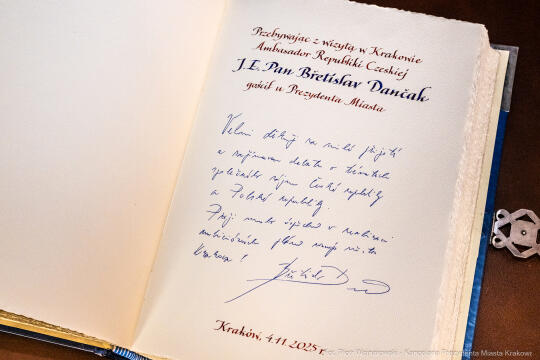 Przebywając z wizytą w Krakowie
Ambasador Republiki Czeskiej
J.E. Pan Břetislav Dančak
gościł u Prezydenta Miasta
Velmi děkuji za milé přijetí
a zajímavou debatu o tématech
společného zájmu České republiky
a Polské republiky.
Přeji mnoho úspěchů v realizaci
ambiciózních plánů rozvoje města
Krakova!
Kraków, 4.11.2025 r.
fot. Piotr Wojnarowski - Kancelaria Prezydenta Miasta Krakowa